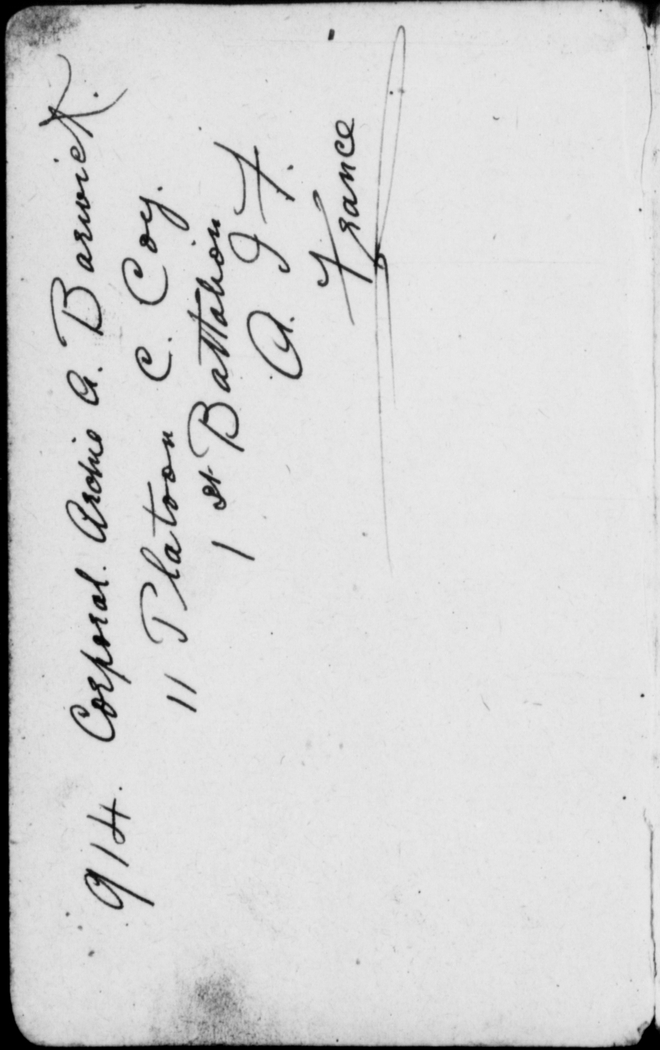 914. Corporal. Archie A. Barwick.
11 Platoon C. Coy.
1st Battalion
A. I F.
France